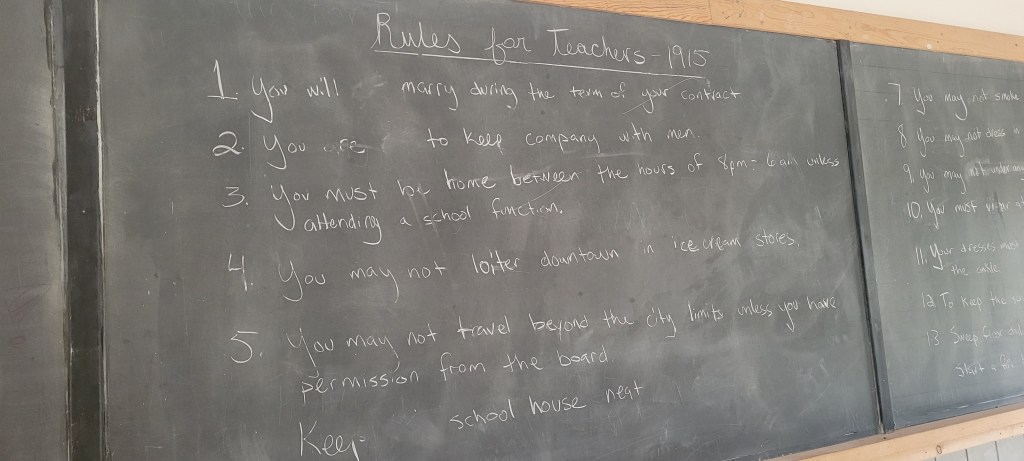 Rules for Teachers - 1915
1. You will marry during the term of your contract
2. You to keep company with men.
3. You must be home between the hours of 8pm - 6am unless
attending a school function.
4. You may not loiter downtown in ice cream stores.
5. You may not travel beyond the city limits unless you have
permission from the board
Keep school house neat
7 You may not smoke
8 You may not dress in
9. You may
10. You must
11. Your dresses must
the ankle
12 To keep the
13 Sweep
start